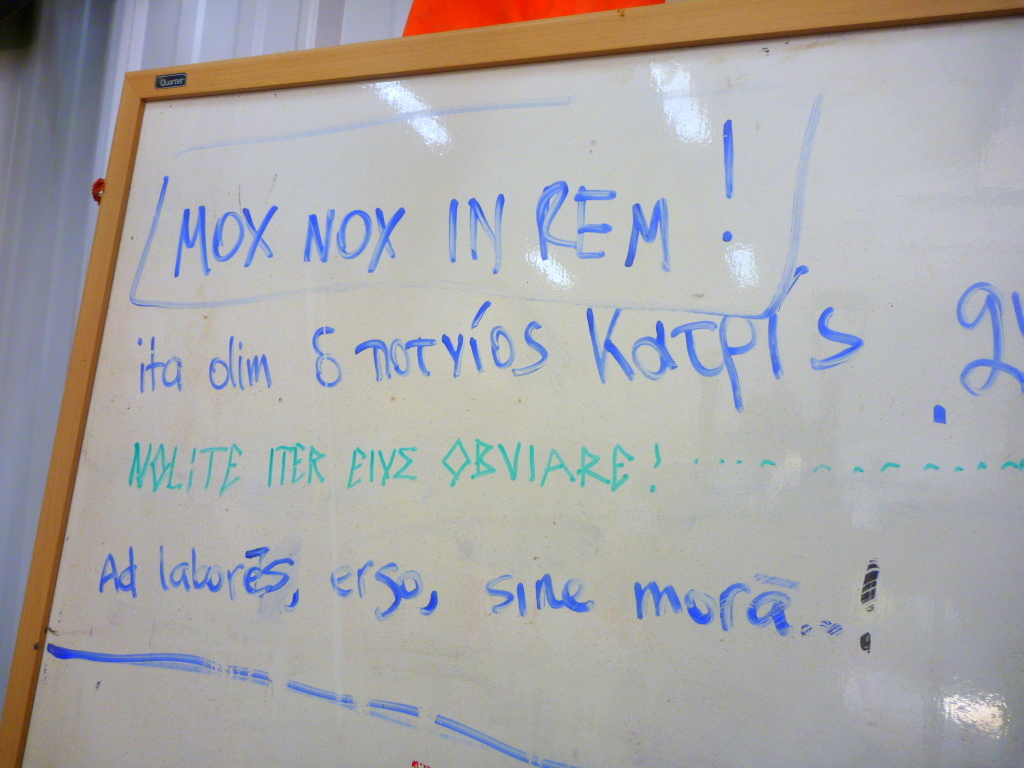 Quartet
MOX NOX IN REM!
ita olim δ ποτνίος Κατρίς
NOLITE ITER EIVΣ OBVIARE!
Ad laborēs, ergo, sine morā...!